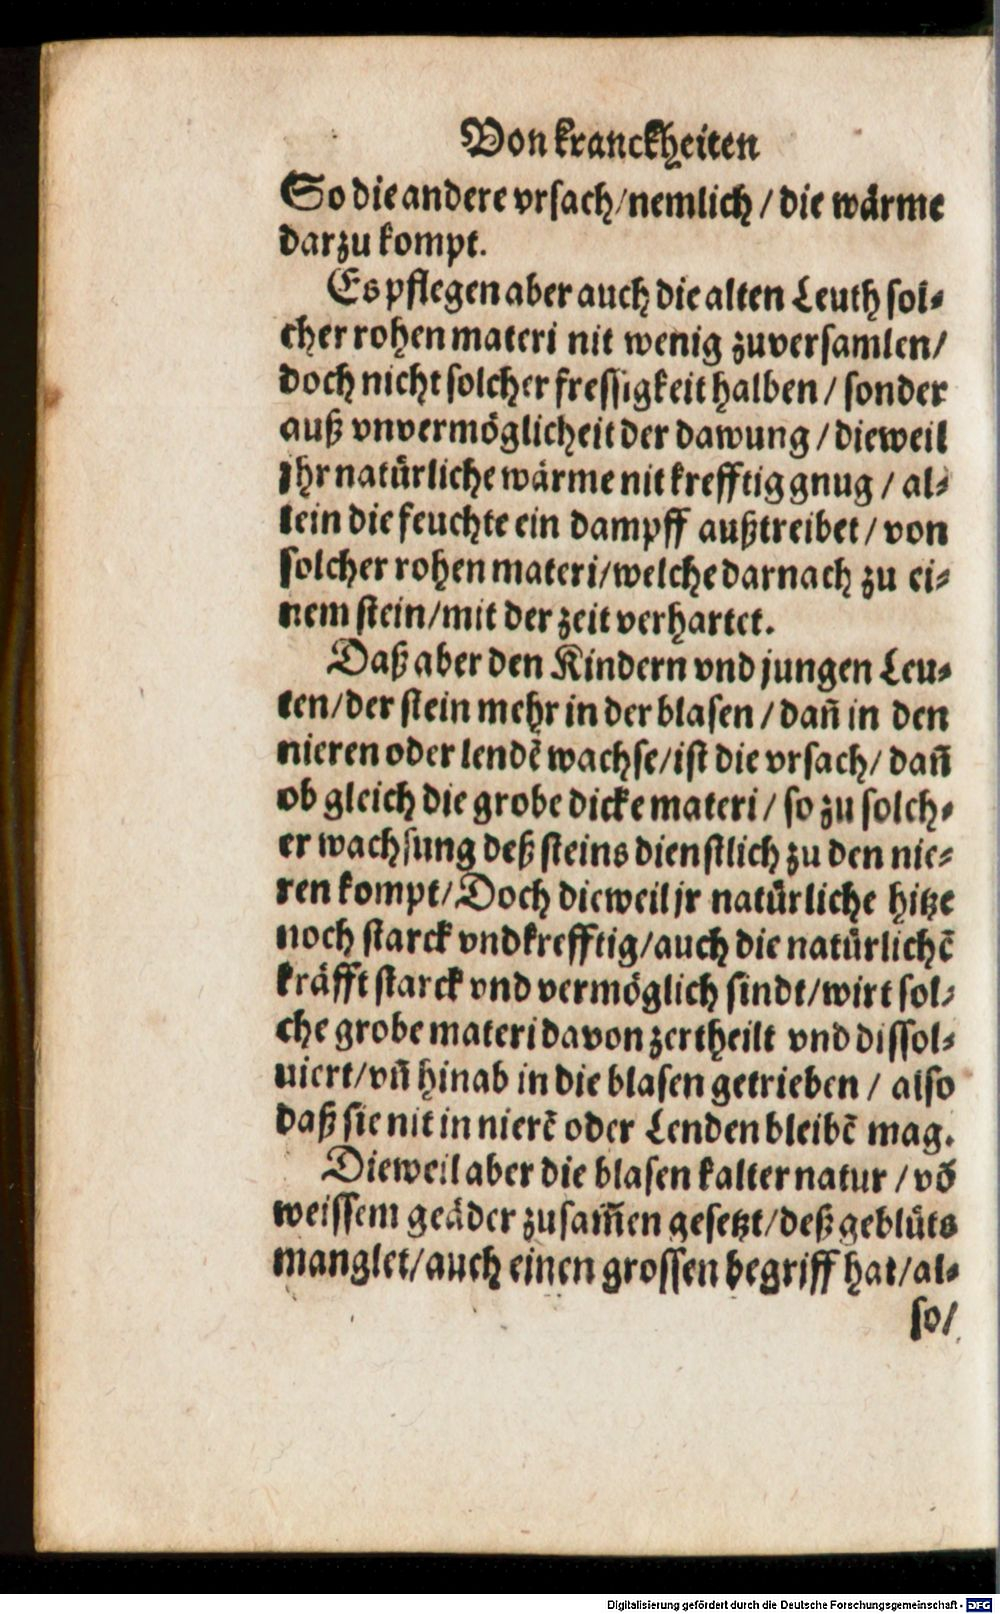 Von kranckheiten
So die andere vrsach/nemlich/ die wärme
darzu kompt.
Es pflegen aber auch die alten Leuth sol⸗
cher rohen materi nit wenig zuversamlen/
doch nicht solcher fressigkeit halben/ sonder
auß vnvermöglicheit der dawung/ dieweil
jhr natürliche wärme nit krefftig gnug/ al⸗
lein die feuchte ein dampff außtreibet/ von
solcher rohen materi/welche darnach zu ei⸗
nem stein/mit der zeit verhartet.
Daß aber den Kindern vnd jungen Leu⸗
ten/der stein mehr in der blasen/ dañ in den
nieren oder lendẽ wachse/ist die vrsach/ dañ
ob gleich die grobe dicke materi/ so zu solch⸗
er wachsung deß steins dienstlich zu den nie⸗
ren kompt/Doch dieweil jr natürliche hitze
noch starck vnd krefftig/auch die natürlichẽ
kräfft starck vnd vermöglich sindt/wirt sol⸗
che grobe materi davon zertheilt vnd dissol⸗
uiert/vñ hinab in die blasen getrieben/ also
daß sie nit in nierẽ oder Lenden bleibẽ mag.
Dieweil aber die blasen kalter natur/ võ
weissem geäder zusam̃en gesetzt/deß geblüts
manglet/auch einen grossen begriff hat/al⸗
so/
Digitalisierung gefördert durch die Deutsche Forschungsgemeinschaft - DFG